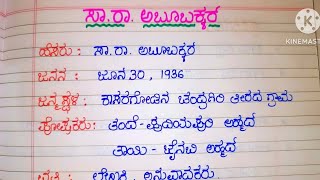 ಸಾ.ರಾ. ಅಬೂಬಕ್ಕರ
KINEMASTER
ಹೆಸರು: ಸಾ. ರಾ. ಅಬೂಬಕ್ಕರ
ಜನನ : ಜೂನ 30, 1936
ಜನ್ಮಸ್ಥಳ: ಕಾಸರಗೋಡಿನ ಚಂದ್ರಗಿರಿ ತೀರದ ಗ್ರಾಮ
ಪೋಷಕರು: ತಂದೆ - ಪುದಿಯಪುರಿ ಅಹ್ಮದ
ತಾಯಿ - ಚೈನಬಿ ಅಹ್ಮದ
ವೃತ್ತಿ : ಲೇಖಕಿ, ಅನುವಾದಕರು